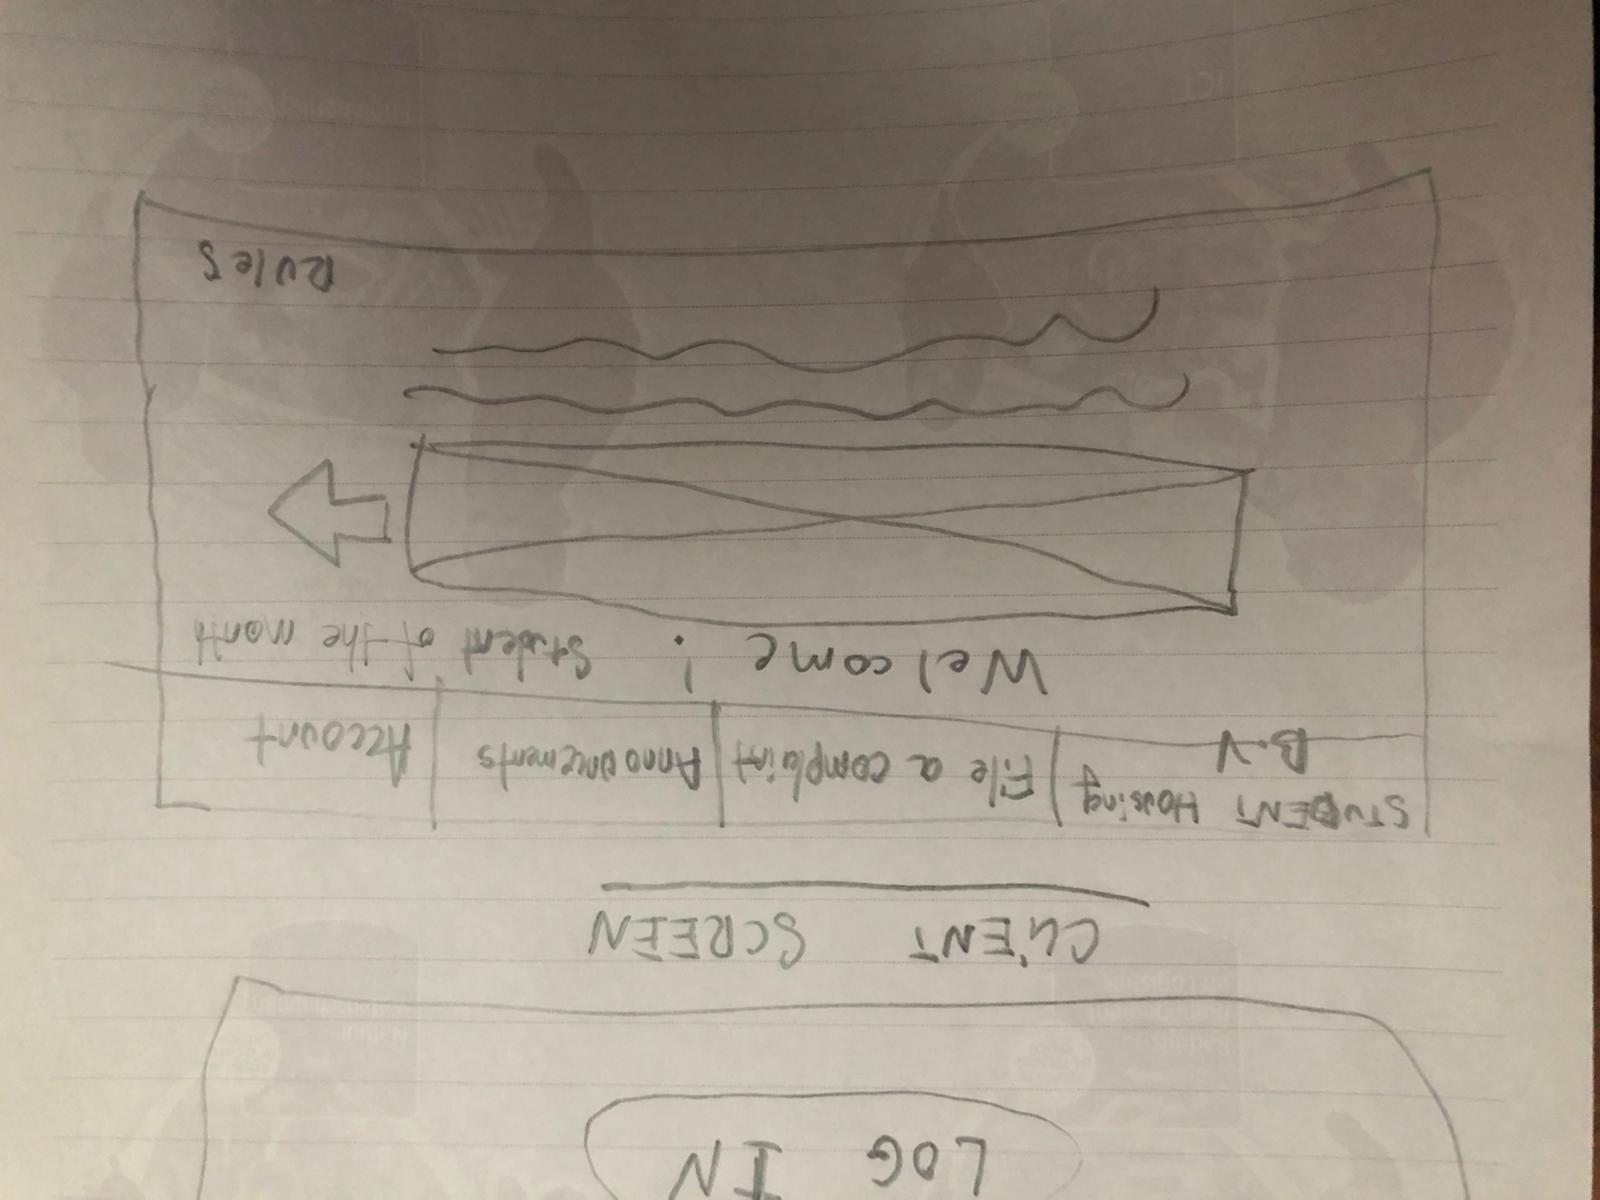 LOG IN
CLiENT SCREEN
STUDENT Housing
B.V
File a complaint
Announcements
Account
Welcome !
Student of the month
RUleS
ICT